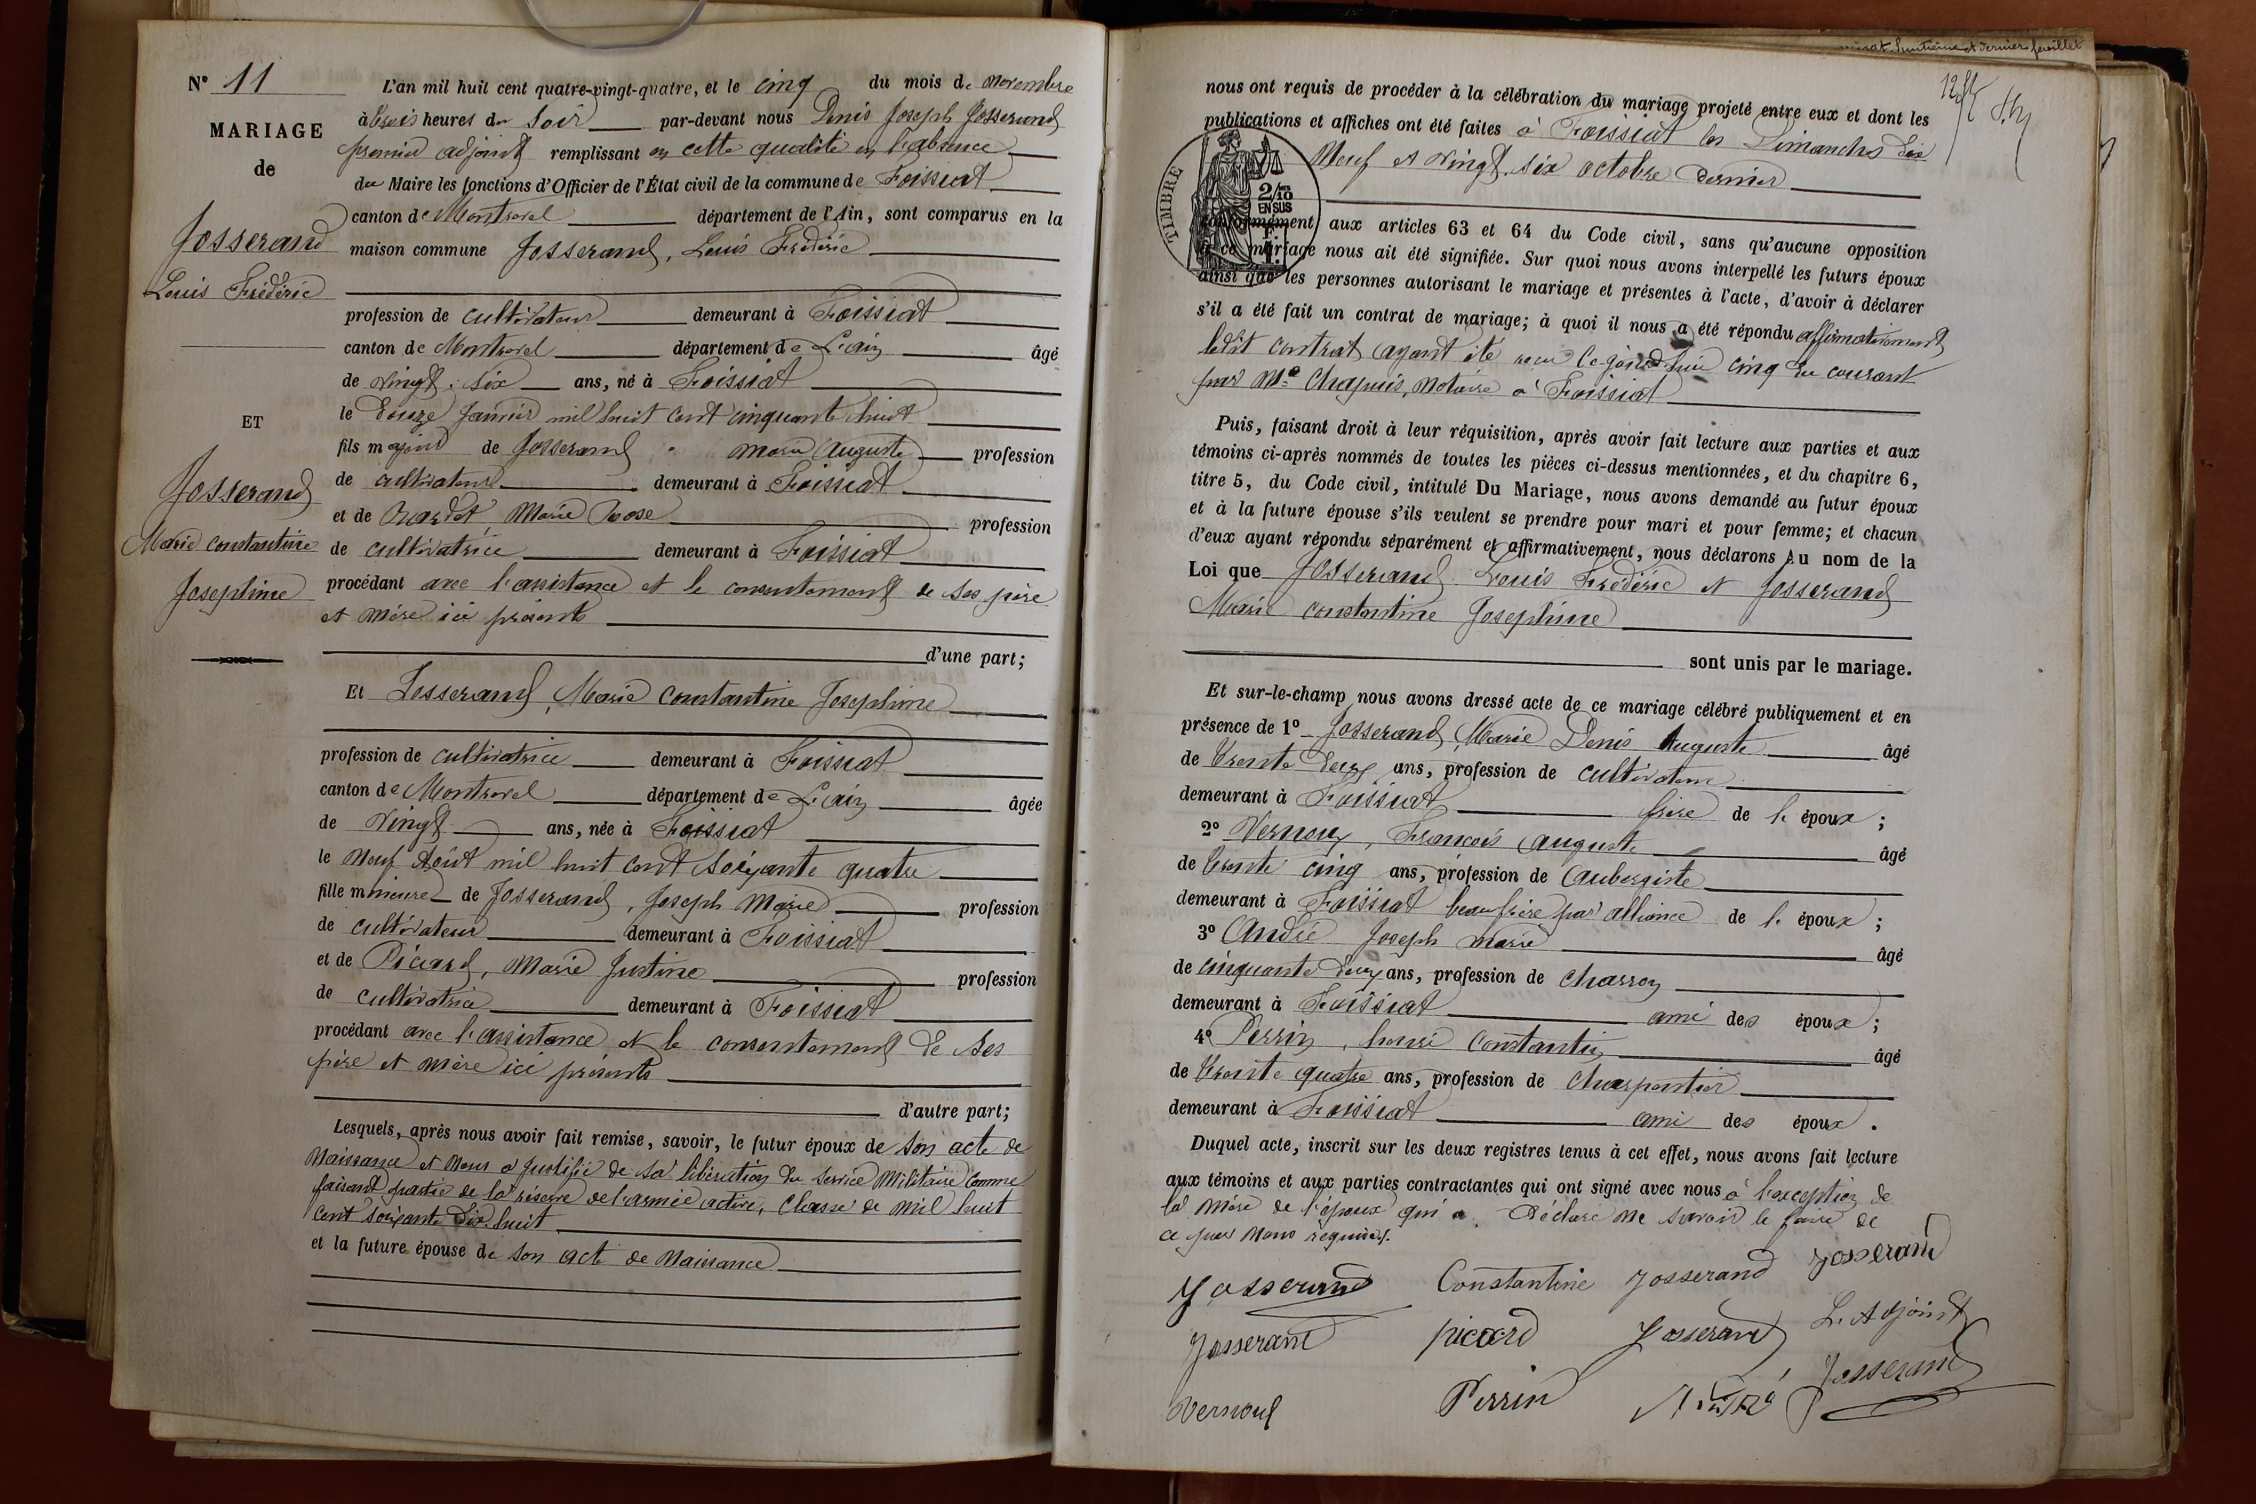 N° 11
MARIAGE
de
Josserand
Louis Frédéric
ET
Josserand
Marie Constantine
Josephine
L'an mil huit cent quatre-vingt-quatre, et le cinq du mois de novembre
à trois heures du Soir par-devant nous Denis Joseph Josserand
premier adjoint remplissant en cette qualité en l'absence
du Maire les fonctions d'Officier de l'État civil de la commune de Foissiat
canton de Montrevel département de l'Ain, sont comparus en la
maison commune Josserand, Louis Frédéric
profession de cultivateur demeurant à Foissiat
canton de Montrevel département de L'ain âgé
de vingt-six ans, né à Foissiat
le Douze Janvier mil huit cent cinquante huit
fils majeur de Josserand Marie Auguste profession
de cultivateur demeurant à Foissiat
et de Marie Rose profession
de cultivatrice demeurant à Foissiat
procédant avec l'assistance et le consentement de ses père
et mère ici présents
d'une part;
Et Josserand, Marie Constantine Josephine
profession de cultivatrice demeurant à Foissiat
canton de Montrevel département de L'ain âgée
de vingt ans, née à Foissiat
le neuf Août mil huit cent soixante quatre
fille mineure de Josserand, Joseph Marie profession
de cultivateur demeurant à Foissiat
et de Picard, Marie Justine profession
de cultivatrice demeurant à Foissiat
procédant avec l'assistance et le consentement de ses
père et mère ici présents
d'autre part;
Lesquels, après nous avoir fait remise, savoir, le futur époux de son acte de
Naissance et nous a justifié de sa libération du service militaire comme
faisant partie de la réserve de l'armée active, classe de mil huit
cent soixante dix huit
et la future épouse de son acte de Naissance
nous ont requis de procéder à la célébration du mariage projeté entre eux et dont les
publications et affiches ont été faites à Foissiat les Dimanches dix
Neuf et Vingt-six octobre dernier
TIMBRE
2/10
EN SUS
conformément aux articles 63 et 64 du Code civil, sans qu'aucune opposition
à ce mariage nous ait été signifiée. Sur quoi nous avons interpellé les futurs époux
ainsi que les personnes autorisant le mariage et présentes à l'acte, d'avoir à déclarer
s'il a été fait un contrat de mariage; à quoi il nous a été répondu affirmativement
ledit contrat ayant été reçu ce jourd'hui cinq du courant
par Me Chapuis, Notaire à Foissiat
Puis, faisant droit à leur réquisition, après avoir fait lecture aux parties et aux
témoins ci-après nommés de toutes les pièces ci-dessus mentionnées, et du chapitre 6,
titre 5, du Code civil, intitulé Du Mariage, nous avons demandé au futur époux
et à la future épouse s'ils veulent se prendre pour mari et pour femme; et chacun
d'eux ayant répondu séparément et affirmativement, nous déclarons Au nom de la
Loi que Josserand Louis Frédéric et Josserand
Marie Constantine Josephine
sont unis par le mariage.
Et sur-le-champ nous avons dressé acte de ce mariage célébré publiquement et en
présence de 1° Josserand Marie Denis Auguste âgé
de trente deux ans, profession de cultivateur
demeurant à Foissiat frère de l'époux;
2° Vernoux, François Auguste âgé
de trente cinq ans, profession de Aubergiste
demeurant à Foissiat beau frère par alliance de l'époux;
3° André Joseph Marie âgé
de cinquante deux ans, profession de charron
demeurant à Foissiat ami des époux;
4° Perrin, henri Constantin âgé
de trente quatre ans, profession de charpentier
demeurant à Foissiat ami des époux.
Duquel acte, inscrit sur les deux registres tenus à cet effet, nous avons fait lecture
aux témoins et aux parties contractantes qui ont signé avec nous à l'exception de
la mère de l'époux qui a déclaré ne savoir le faire de
ce par nous requise.
Josserand Constantine Josserand Josserand
Josserand picard Josserand L'Adjoint
Vernoux Perrin André Josserand